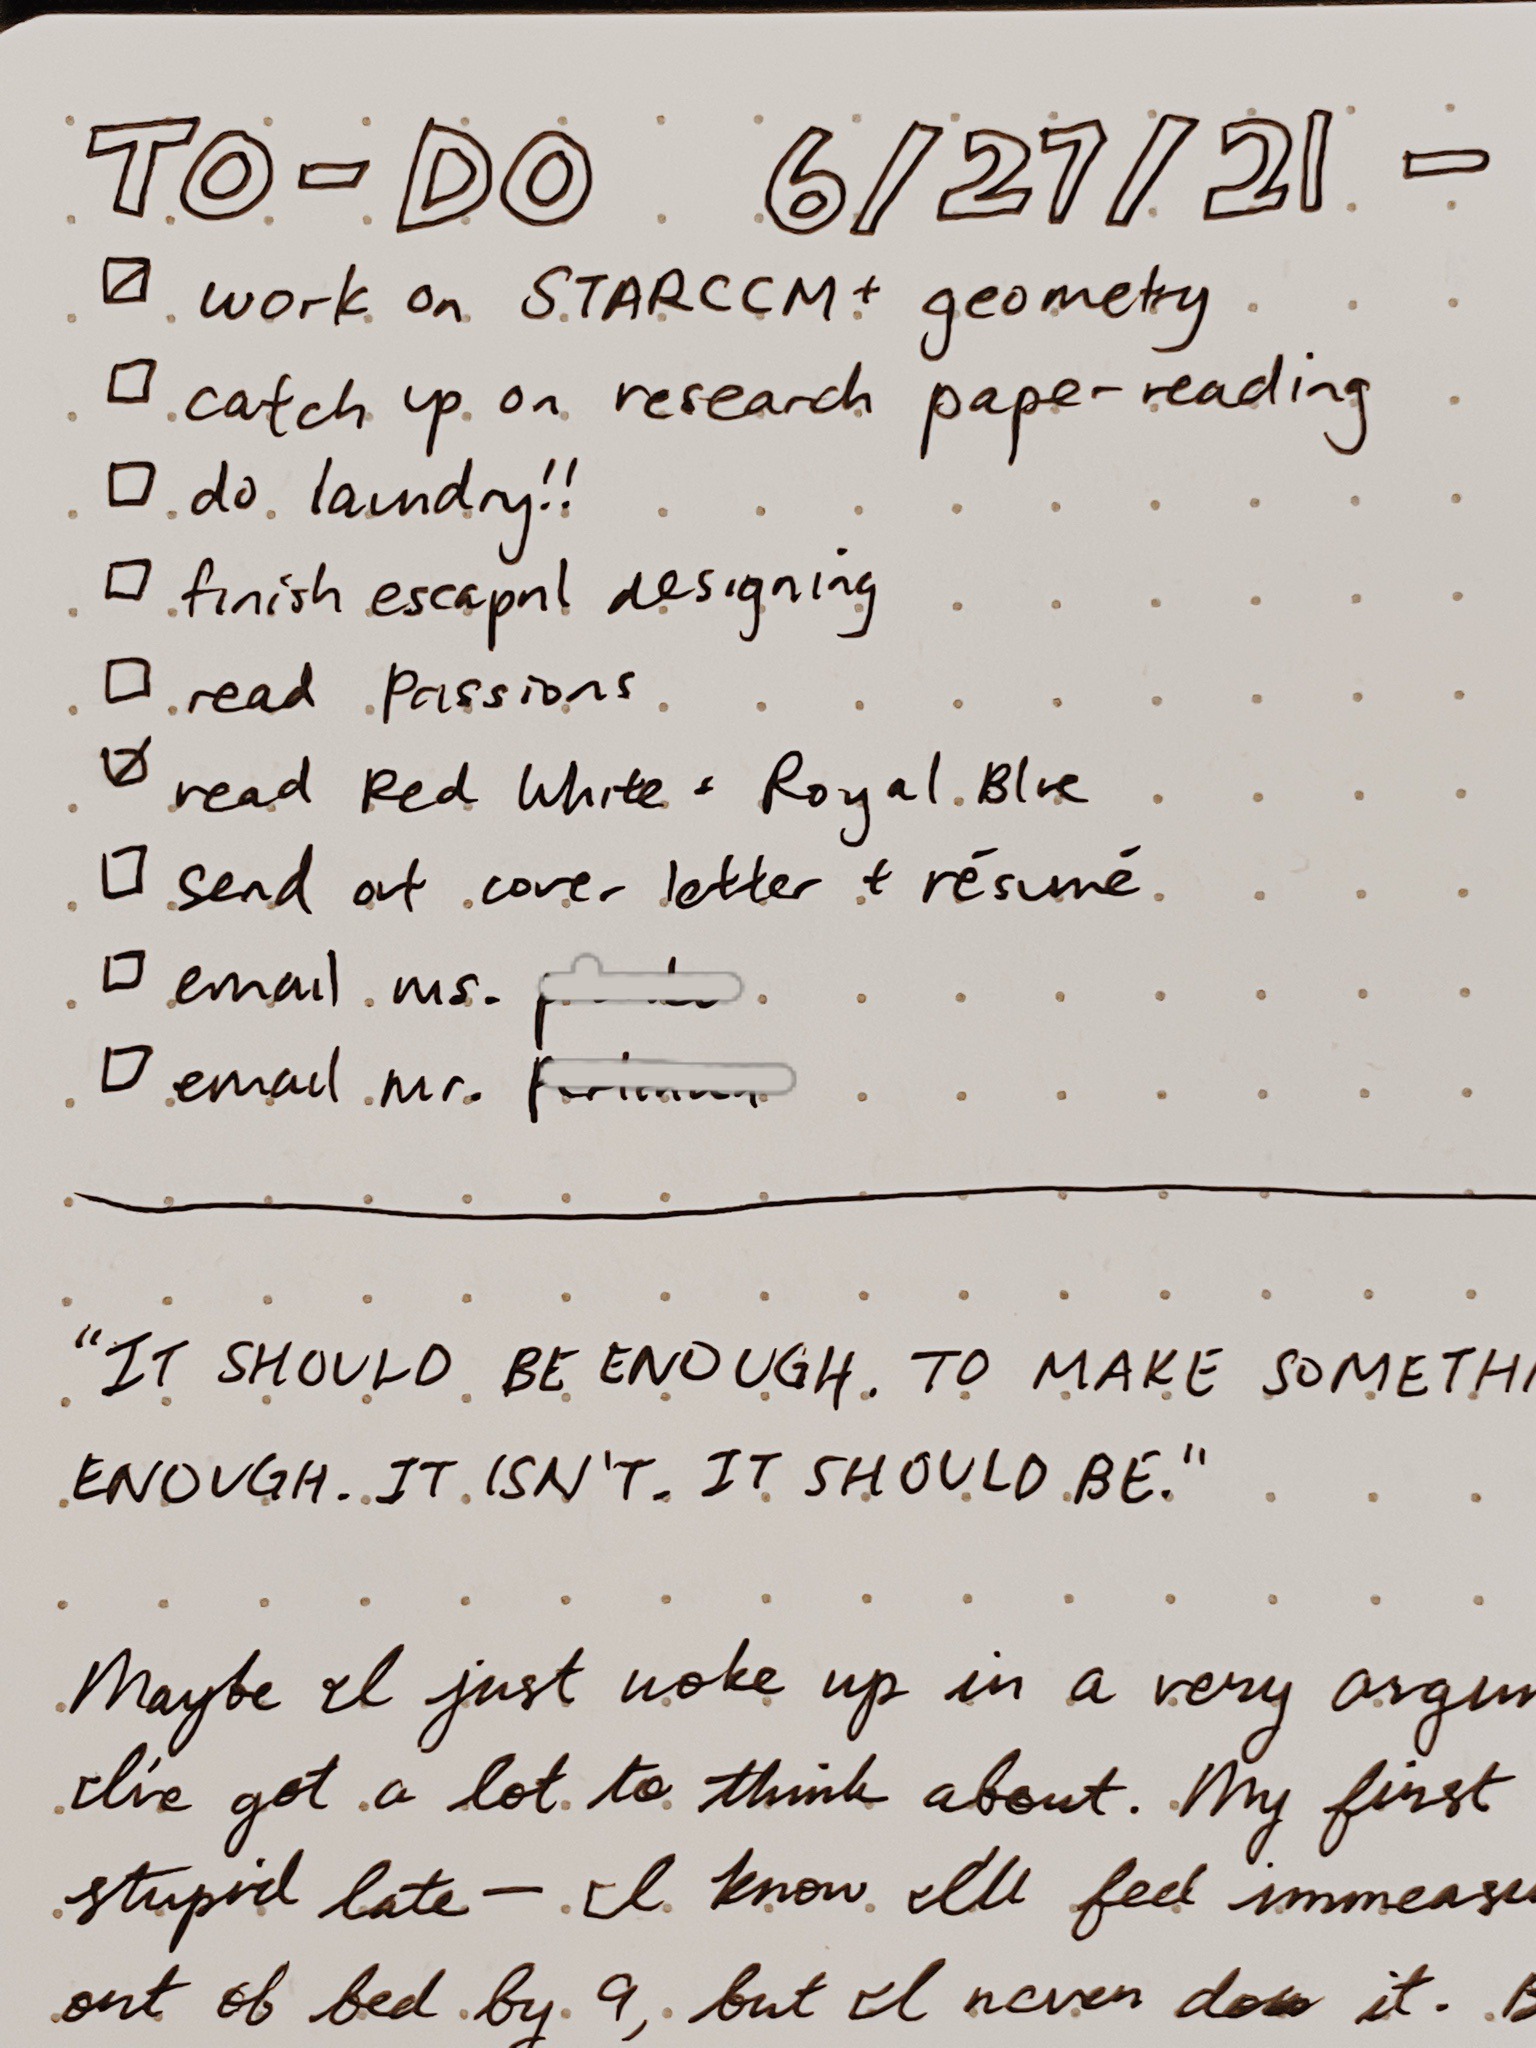 TO-DO 6/27/21 -
work on STARCCM+ geometry
catch up on research paper-reading
do laundry!!
finish designing
read Passions
read Red White + Royal Blue
send out cover letter + résumé
email ms.
email mr.
"IT SHOULD BE ENOUGH. TO MAKE SOMETHI
ENOUGH. IT ISN'T. IT SHOULD BE."
Maybe I just woke up in a very argum
I've got a lot to think about. My first
stupid late — I know I'll feel immeasu
out of bed by 9, but I never do it. B